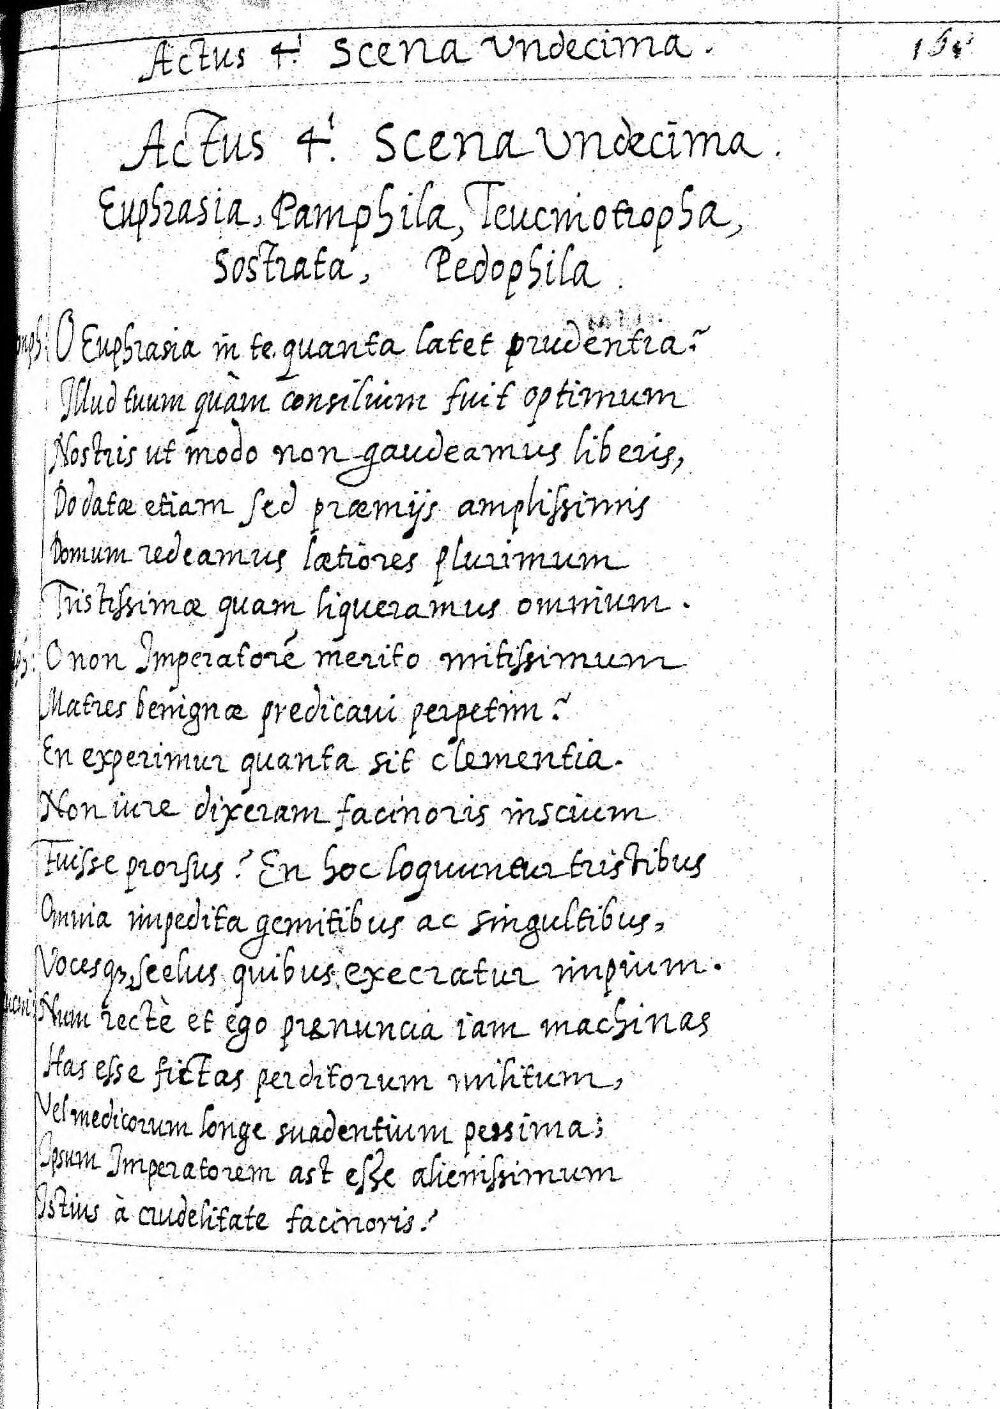 Actus 4.ⁱ Scena Vndecima.
Actus 4.ⁱ Scena Vndecima.
Euphrasia, Pamphila, Teucmotropha,
Sostrata, Pedophila.
O Euphrasia in te quanta latet prudentia?
Illud tuum quàm consilium fuit optimum
Nostris ut modo non gaudeamus liberis,
Do datæ etiam sed præmijs amplissimis
Domum redeamus lætiores plurimum
Tristissimæ quam liqueramus omnium.
O non Imperatorē merito mitissimum
Matres benignæ predicaui perpetim?
En experimur quanta sit clementia.
Non iure dixeram facinoris inscium
Fuisse prorsus? En hoc loquuntur tristibus
Omnia impedita gemitibus ac singultibus,
Vocesq, scelus quibus execratur impium.
Num rectè et ego prænuncia iam machinas
Has esse fictas perditorum militum,
Vel medicorum longe suadentium pessima;
Ipsum Imperatorem ast esse alienissimum
Istius à crudelitate facinoris?